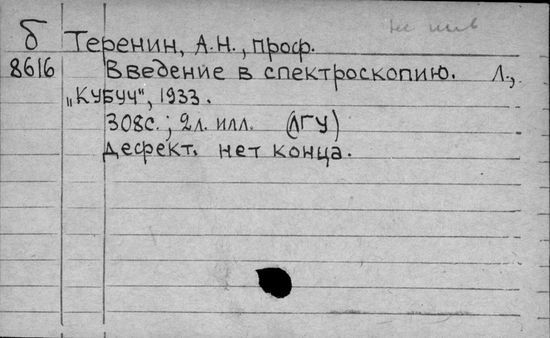 б Теренин, А.Н., проф.
8616 Введение в спектроскопию. Л.,
„КУБУЧ", 1933.
308с.; 2л. илл. (ЛГУ)
Дефект. нет конца.